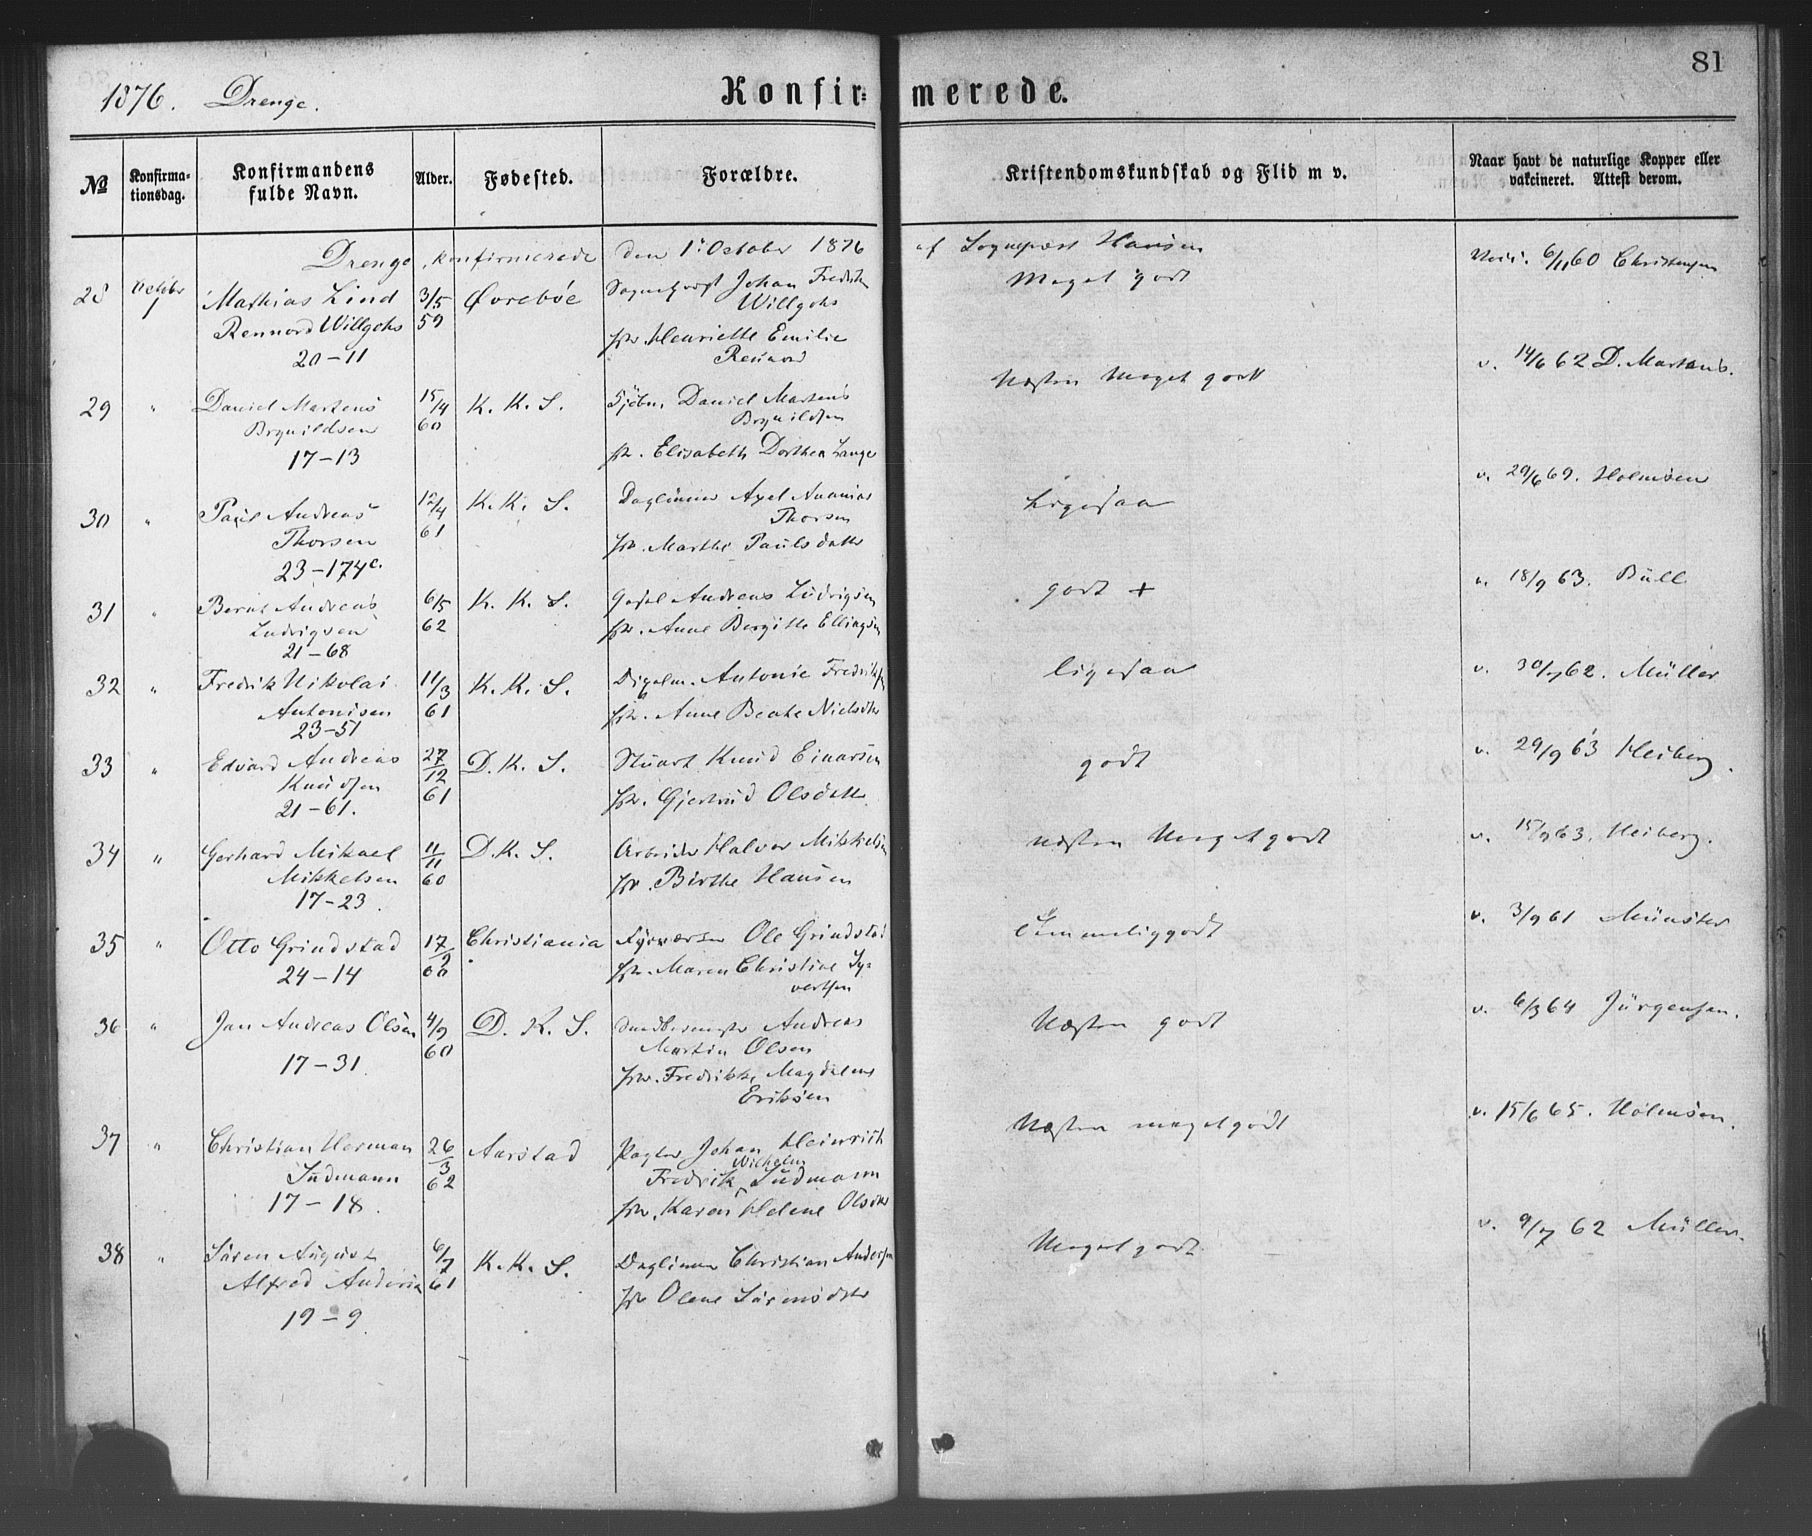 1876. Drenge.
Konfir- merede.
81
No
Konfirma-
tionsdag.
Konfirmandens
fulde Navn.
Alder.
Fødested.
Forældre.
Kristendomskundskab og Flid m v.
Naar havt de naturlige Kopper eller
vakcineret. Attest derom.
Drenge, konfirmerede den 1ste October 1876 af Sognepræst Hansen
28 October 1 Mathias Lind 3/5 Øvrebøe Sognepræst Johan Fredrik Meget godt 6/11 60 Christensen
Rennord Willgohs 59 Willgohs
20-11 Henriette Emilie
Rennord
29 " Daniel Martens 15/4 K. K. S. Daniel Martens Næsten Meget godt v. 14/6 62 D. Martens.
Brynildsen 60 Brynildsen
17-13 Elisabeth Dorthea Lange
30 " Paul Andreas 12/4 K. K. S. Axel Ananias Ligesaa v. 29/6 69. Holmsen
Thorsen 61 Thorsen
23-174c. Marthe Paulsdatter
31 " Bernt Andreas 6/5 K. K. S. Andreas Ludvigsen godt + v. 18/9 63. Bull
Ludvigsen 62 Anne Birgitte Ellingsen
21-68
32 " Fredrik Nikolai 11/3 K. K. S. Antonie Fredriksen ligesaa v. 30/7 62. Müller
Antonisen 61 Anne Beate Nielsdtr
23-51
33 " Edvard Andreas 27/12 D. K. S. Stuart Knud Einarsen godt v. 29/9 63 Heiberg.
Knudsen 61 Gjertrud Olsdatter
21-61.
34 " Gerhard Mikael 11/11 D. K. S. Arbeider Halvor Mikkelsen Næsten Meget godt v. 15/9 63. Heiberg.
Mikkelsen 60 Birthe Hansen
17-23.
35 " Otto Grindstad 17/2 Christiania Ole Grindstad Temmelig godt v. 3/9 61 Münster
24-14 60 Maren Christine Sy-
vertsen
36 " Jan Andreas Olsen 4/9 D. K. S. Andreas Næsten godt v. 6/3 64 Jürgensen.
60 Martin Olsen
17-31. Fredrikke Magdalene
Eriksen
37 " Christian Herman 26/3 Aarstad Johan Heinrich Næsten meget godt v. 15/6 65. Holmsen.
Südmann 62 Fredrik Wilhelm Südmann
17-18. Karen Helene Olsdtr
38 " Sören August 6/7 K. K. S. Christian Andersen Meget godt. v. 9/7 62 Müller.
Alfred Andersen 61 Olene Sörensdtr
19-9.